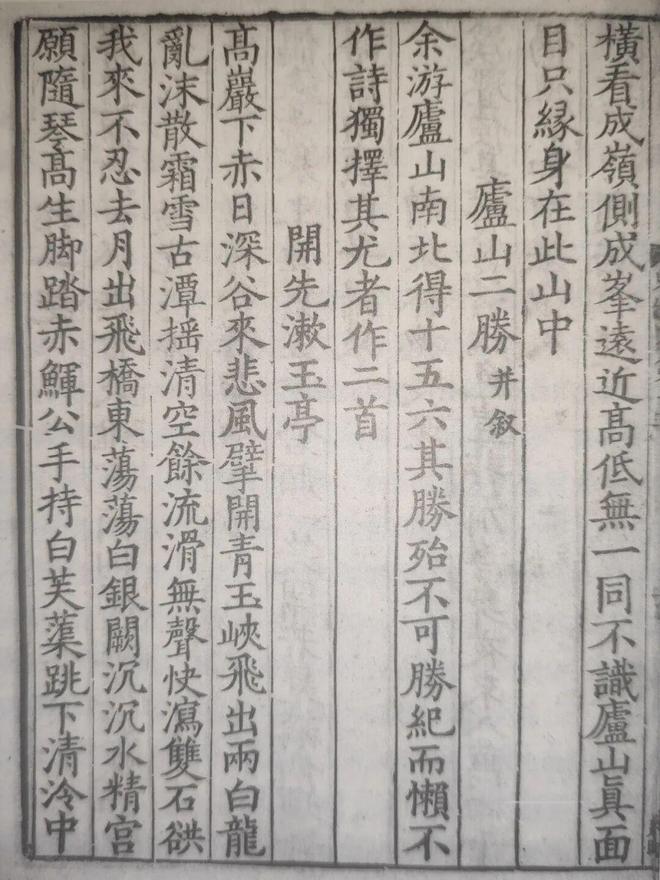 橫看成嶺側成峯遠近髙低無一同不識廬山眞面
目只縁身在此山中
廬山二勝并叙
余游廬山南北得十五六其勝殆不可勝紀而懶不
作詩獨擇其尤者作二首
開先漱玉亭
髙巖下赤日深谷來悲風擘開青玉峽飛出兩白龍
亂沫散霜雪古潭揺清空餘流滑無聲快瀉雙石谼
我來不忍去月出飛橋東蕩蕩白銀闕沉沉水精宫
願隨琴髙生脚踏赤鯶公手持白芙蕖跳下清泠中